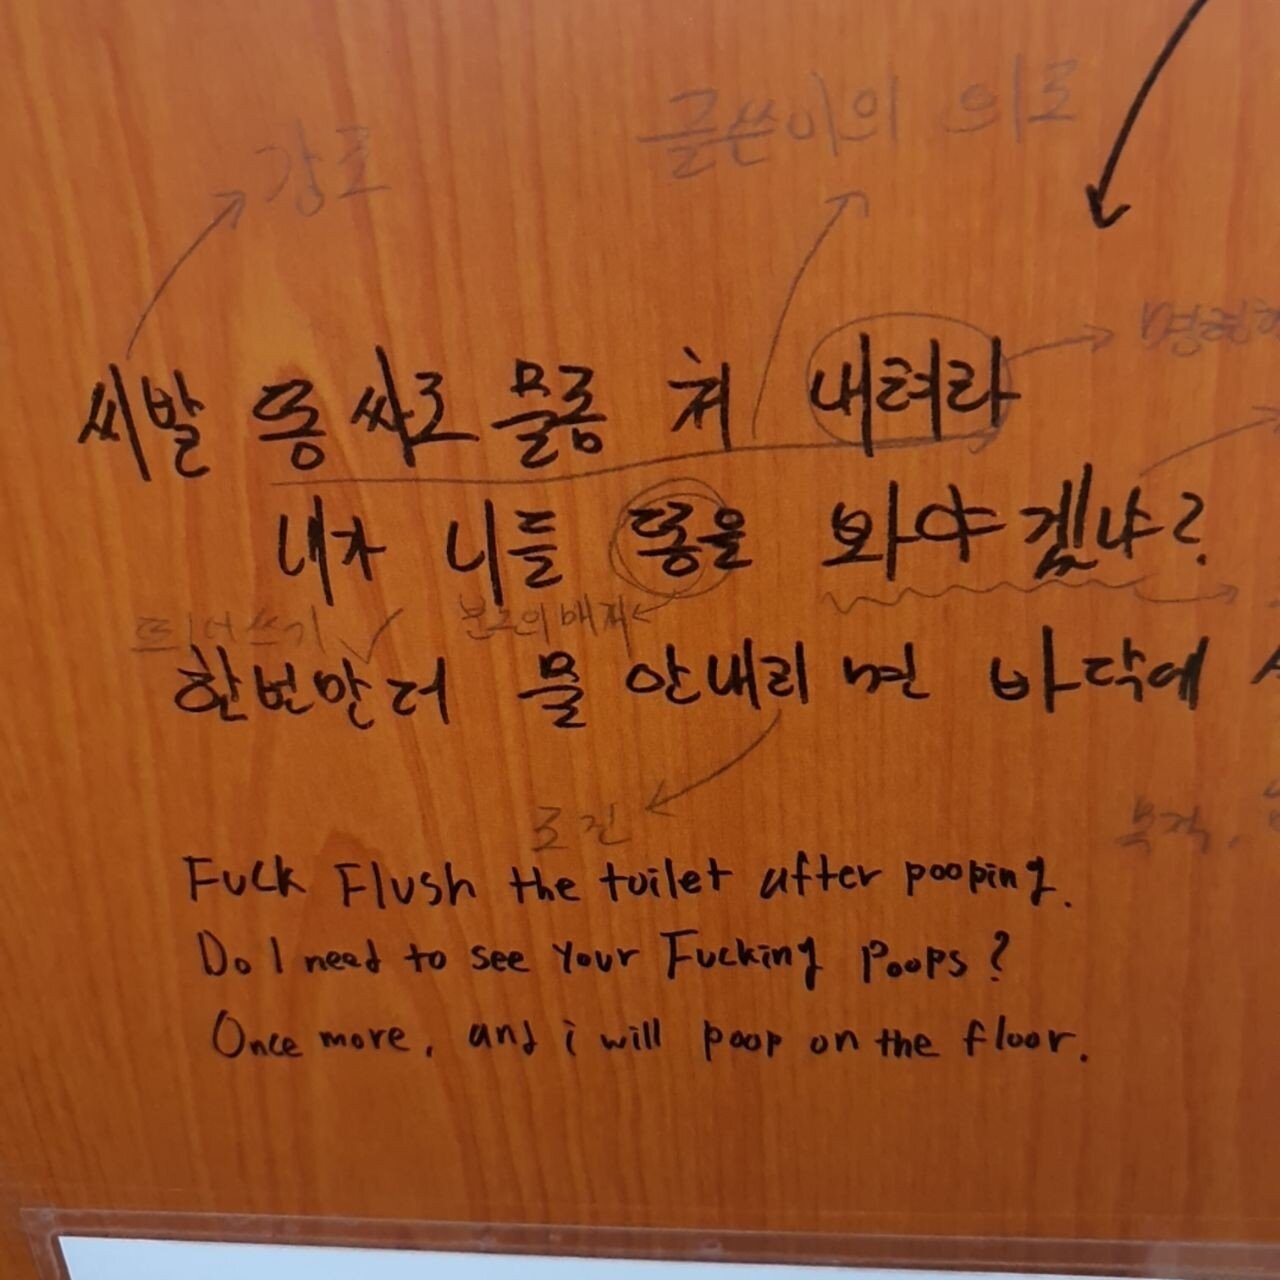 글쓴이의 의도
강조
명령형
씨발 똥 싸고 물좀 쳐 내려라
내가 니들 똥을 봐야겠냐?
띄어쓰기
분노의 매개
한번만 더 물 안내리면 바닥에
조건
Fuck Flush the toilet after pooping.
Do I need to see your Fucking Poops?
Once more, and i will poop on the floor.